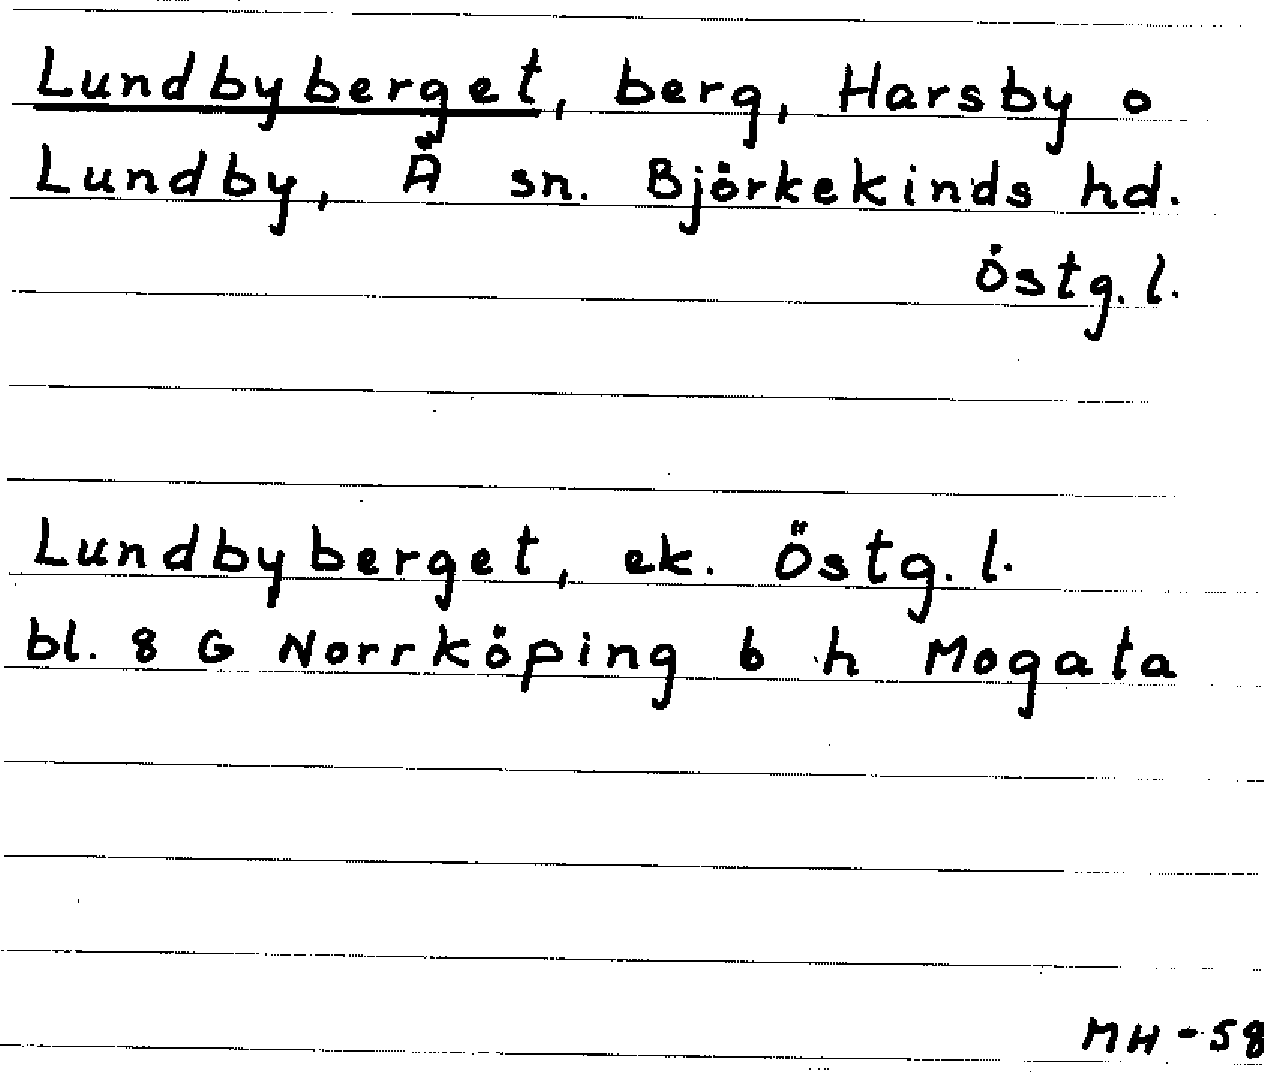 Lundbyberget, berg, Harsby o
Lundby, Å sn. Björkekinds hd.
Östg. l.
Lundbyberget, ek. Östg. l.
bl. 8 G Norrköping 6 h Mogata
MH - 58